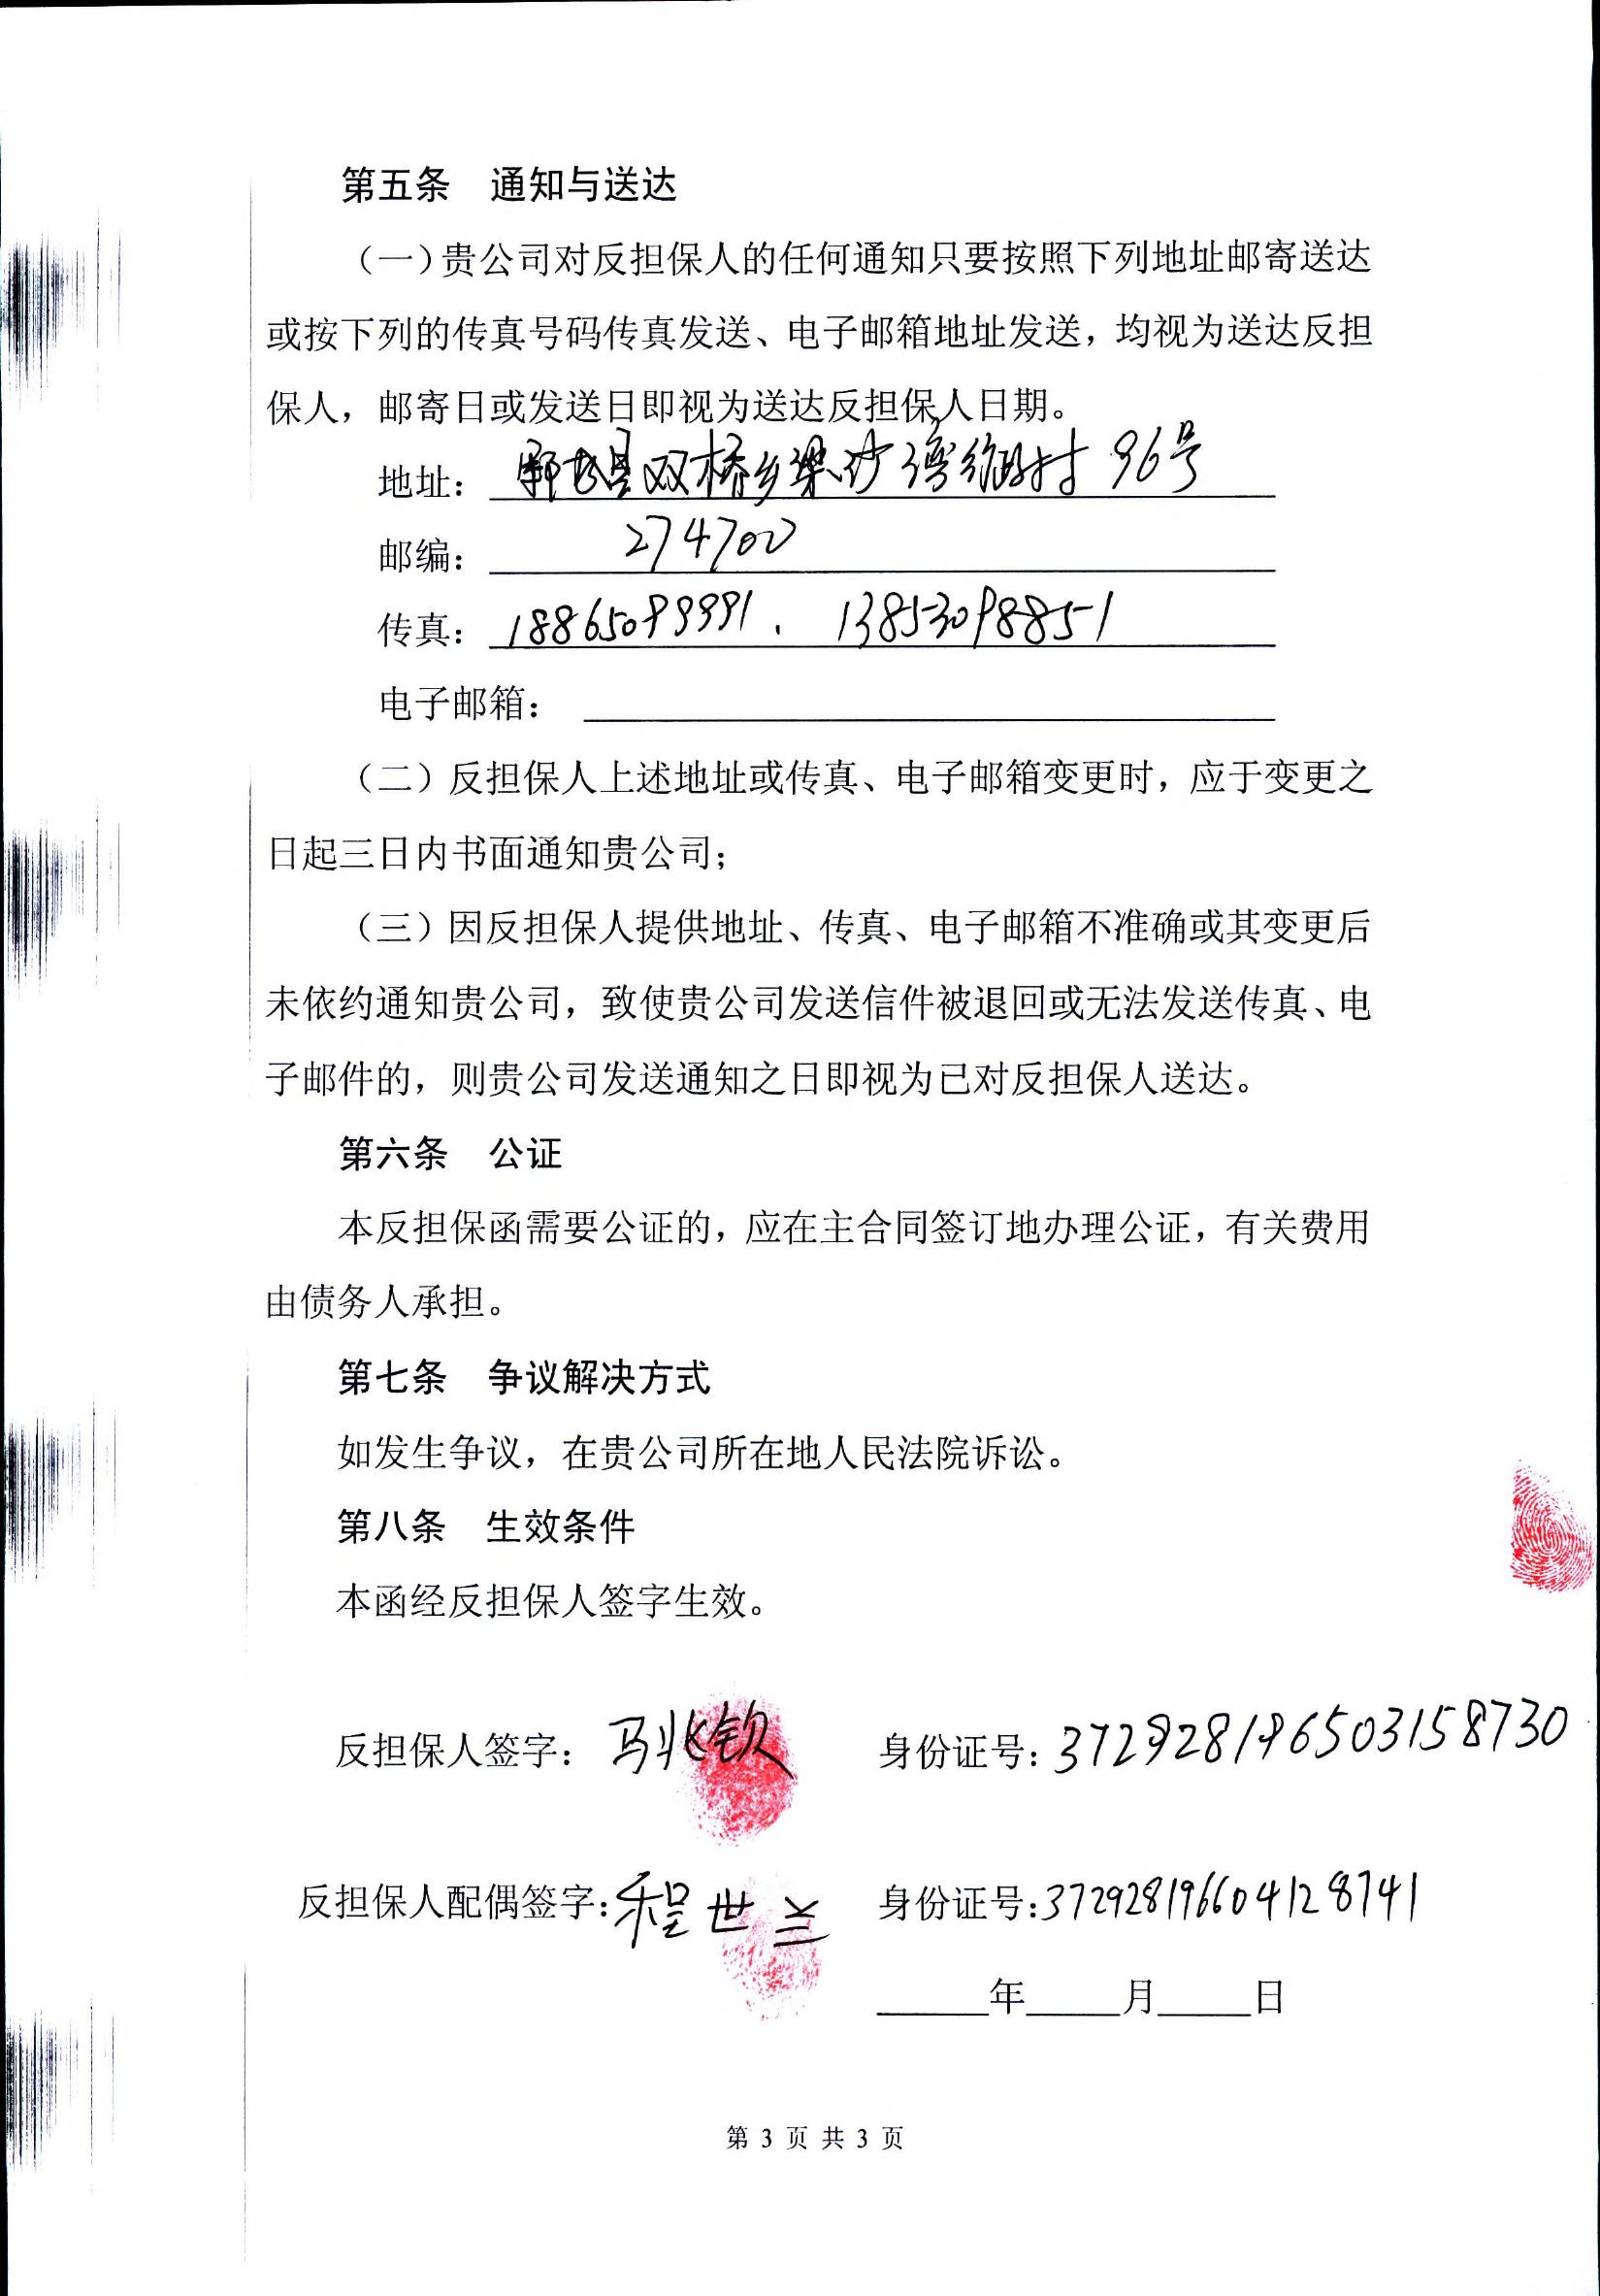 第五条 通知与送达
（一）贵公司对反担保人的任何通知只要按照下列地址邮寄送达
或按下列的传真号码传真发送、电子邮箱地址发送，均视为送达反担
保人，邮寄日或发送日即视为送达反担保人日期。
地址：县双桥乡梁 村 96号
邮编：274700
传真：13853098851
电子邮箱：
（二）反担保人上述地址或传真、电子邮箱变更时，应于变更之
日起三日内书面通知贵公司；
（三）因反担保人提供地址、传真、电子邮箱不准确或其变更后
未依约通知贵公司，致使贵公司发送信件被退回或无法发送传真、电
子邮件的，则贵公司发送通知之日即视为已对反担保人送达。
第六条 公证
本反担保函需要公证的，应在主合同签订地办理公证，有关费用
由债务人承担。
第七条 争议解决方式
如发生争议，在贵公司所在地人民法院诉讼。
第八条 生效条件
本函经反担保人签字生效。
反担保人签字：马兆钦 身份证号：372928196503158730
反担保人配偶签字：程世兰 身份证号：372928196604128741
年 月 日
第 3 页 共 3 页